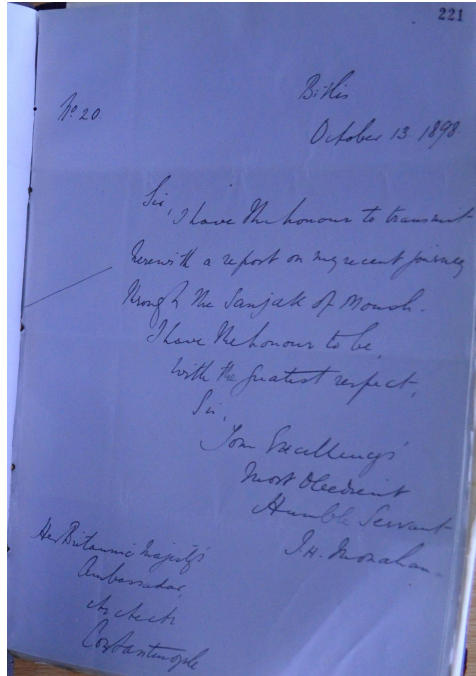 221
Bitlis
No. 20.
October 13. 1898
Sir,
I have the honour to transmit
herewith a report on my recent journey
through the Sanjak of Moush.
I have the honour to be,
with the greatest respect,
Sir,
Your Excellency's
Most Obedient
Humble Servant
J.H. Monahan
Her Britannic Majesty's
Ambassador,
&c &c &c
Constantinople